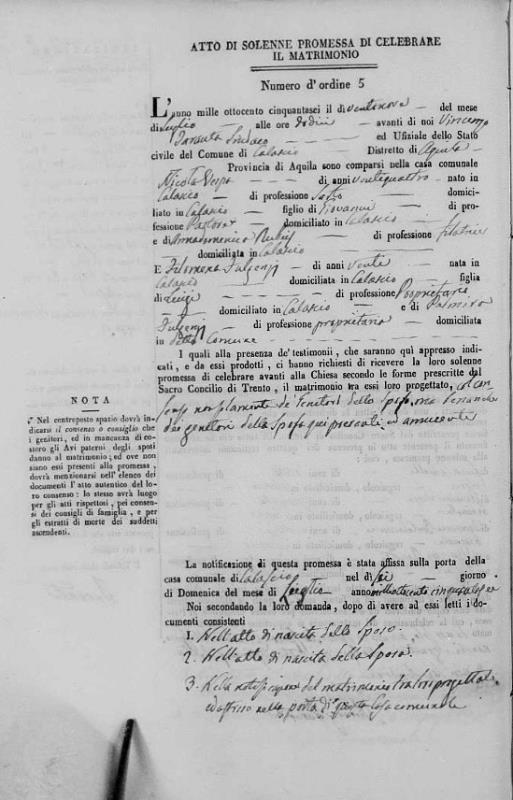 ATTO DI SOLENNE PROMESSA DI CELEBRARE
IL MATRIMONIO
Numero d'ordine 5
L'anno mille ottocento cinquantasei il dì ventinove del mese
di Luglio alle ore dodici avanti di noi Vincenzo
Sindaco ed Ufiziale dello Stato
civile del Comune di Calascio Distretto di Aquila
Provincia di Aquila sono comparsi nella casa comunale
Nicola Vespa di anni ventiquattro nato in
Calascio di professione Sarto domici-
liato in Calascio figlio di Giovanni di pro-
fessione Pastore domiciliato in Calascio
e di Annadomenica di professione filatrice
domiciliata in Calascio
E Filomena Fulgenzj di anni venti nata in
Calascio domiciliata in Calascio figlia
di Luigi di professione Proprietario
domiciliato in Calascio e di Palmira
Fulgenzj di professione proprietaria domiciliata
in Comune
I quali alla presenza de' testimonii, che saranno quì appresso indi-
cati, e da essi prodotti, ci hanno richiesti di ricevere la loro solenne
promessa di celebrare avanti alla Chiesa secondo le forme prescritte dal
Sacro Concilio di Trento, il matrimonio tra essi loro progettato, col con
de' Genitori dello Sposo, ma
dei genitori della Sposa qui presenti ed annuenti
NOTA
Nel contreposto spazio dovrà in-
dicarsi il consenso o consiglio che
i genitori, ed in mancanza di co-
storo gli Avi paterni degli sposi
danno al matrimonio; ed ove non
siano essi presenti alla promessa,
dovrà menzionarsi nell'elenco dei
documenti l'atto autentico del lo-
ro consenso: lo stesso avrà luogo
per gli atti rispettosi, pei consen-
si dei consigli di famiglia, e per
gli estratti di morte dei suddetti
ascendenti.
La notificazione di questa promessa è stata affissa sulla porta della
casa comunale di Calascio nel dì sei giorno
di Domenica del mese di Luglio anno milleottocento cinquantasei
Noi secondando la loro domanda, dopo di avere ad essi letti i do-
cumenti consistenti
1. Nell'atto di nascita dello Sposo.
2. Nell'atto di nascita della Sposa.
3. Nella notificazione del matrimonio tra loro progettato
ed affisso nella porta di questa Casa comunale